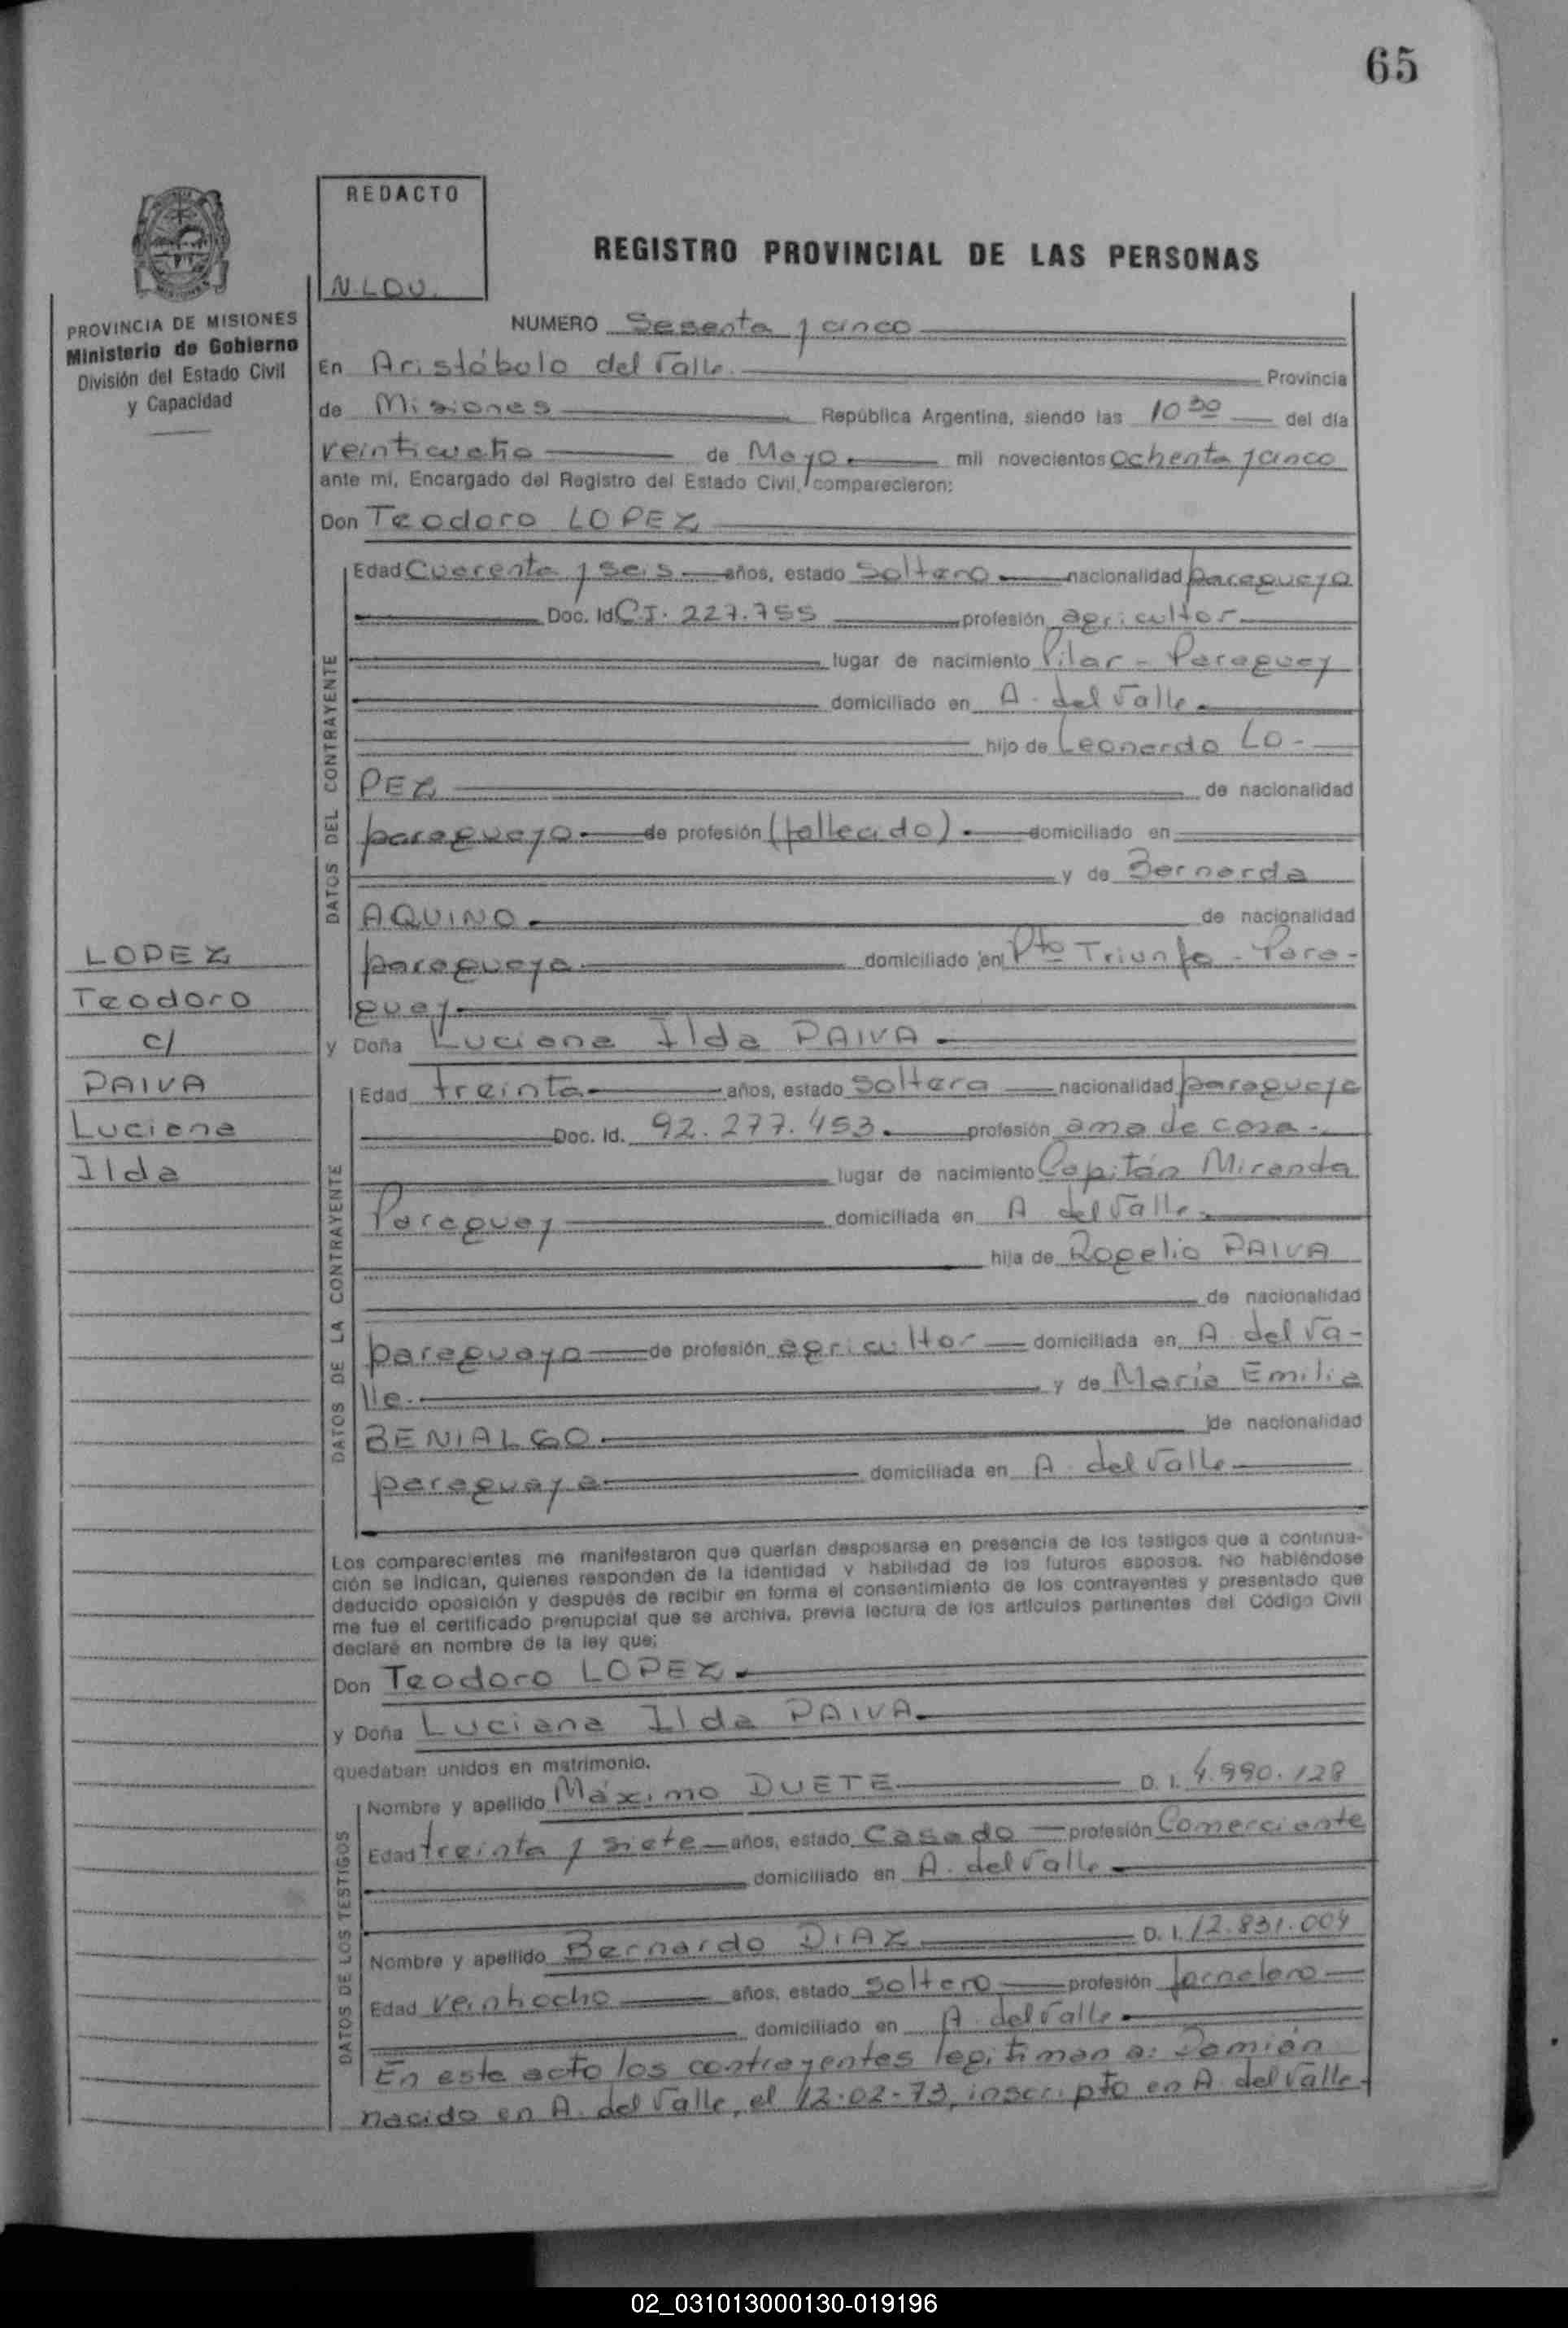 65
REDACTO
N.LDU.
REGISTRO PROVINCIAL DE LAS PERSONAS
PROVINCIA DE MISIONES
Ministerio de Gobierno
División del Estado Civil
y Capacidad
NUMERO Sesenta y cinco
En Aristóbulo del Valle. Provincia
de Misiones República Argentina, siendo las 10 30 del día
veinticuatro de Mayo. mil novecientos ochenta y cinco
ante mí, Encargado del Registro del Estado Civil, comparecieron:
Don Teodoro LOPEZ
DATOS DEL CONTRAYENTE
Edad Cuarenta y seis años, estado Soltero nacionalidad paraguaya
Doc. Id C.I. 227.755 profesión agricultor
lugar de nacimiento Pilar - Paraguay
domiciliado en A. del Valle.
hijo de Leonardo LO-
PEZ de nacionalidad
paraguaya. de profesión (fallecido). domiciliado en
y de Bernarda
AQUINO. de nacionalidad
paraguaya domiciliado en Pto Triunfo - Para-
guay.
y Doña Luciana Ilda PAIVA.
LOPEZ
Teodoro
c/
PAIVA
Luciana
Ilda
DATOS DE LA CONTRAYENTE
Edad treinta años, estado Soltera nacionalidad paraguaya
Doc. Id. 92.277.453. profesión ama de casa-.
lugar de nacimiento Capitán Miranda
Paraguay domiciliada en A del Valle.
hija de Rogelio PAIVA
de nacionalidad
paraguaya de profesión agricultor domiciliada en A. del Va-
lle. y de María Emilia
BENIALGO. de nacionalidad
paraguaya domiciliada en A. del Valle.
Los comparecientes me manifestaron que querían desposarse en presencia de los testigos que a continua-
ción se indican, quienes responden de la identidad y habilidad de los futuros esposos. No habiéndose
deducido oposición y después de recibir en forma el consentimiento de los contrayentes y presentado que
me fue el certificado prenupcial que se archiva, previa lectura de los artículos pertinentes del Código Civil
declaré en nombre de la ley que;
Don Teodoro LOPEZ.
y Doña Luciana Ilda PAIVA.
quedaban unidos en matrimonio.
DATOS DE LOS TESTIGOS
Nombre y apellido Máximo DUETE D. I. 4.990.128
Edad treinta y siete años, estado Casado profesión Comerciante
domiciliado en A. del Valle.
Nombre y apellido Bernardo DIAZ D. I. 12.831.004
Edad veintiocho años, estado soltero profesión jornalero
domiciliado en A. del Valle.
En este acto los contrayentes legitiman a: Damián
nacido en A. del Valle, el 12-02-73, inscripto en A. del Valle.
02_031013000130-019196